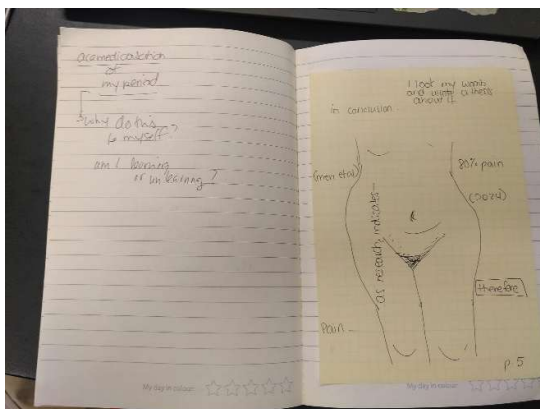 academication
of
my period
why do this
to myself?
am I learning
or unlearning?
My day in colour
I took my womb
and wrote a thesis
about it
in conclusion
(men et al)
80% pain
(2024)
as research indicates
therefore
Pain
p. 5
My day in colour